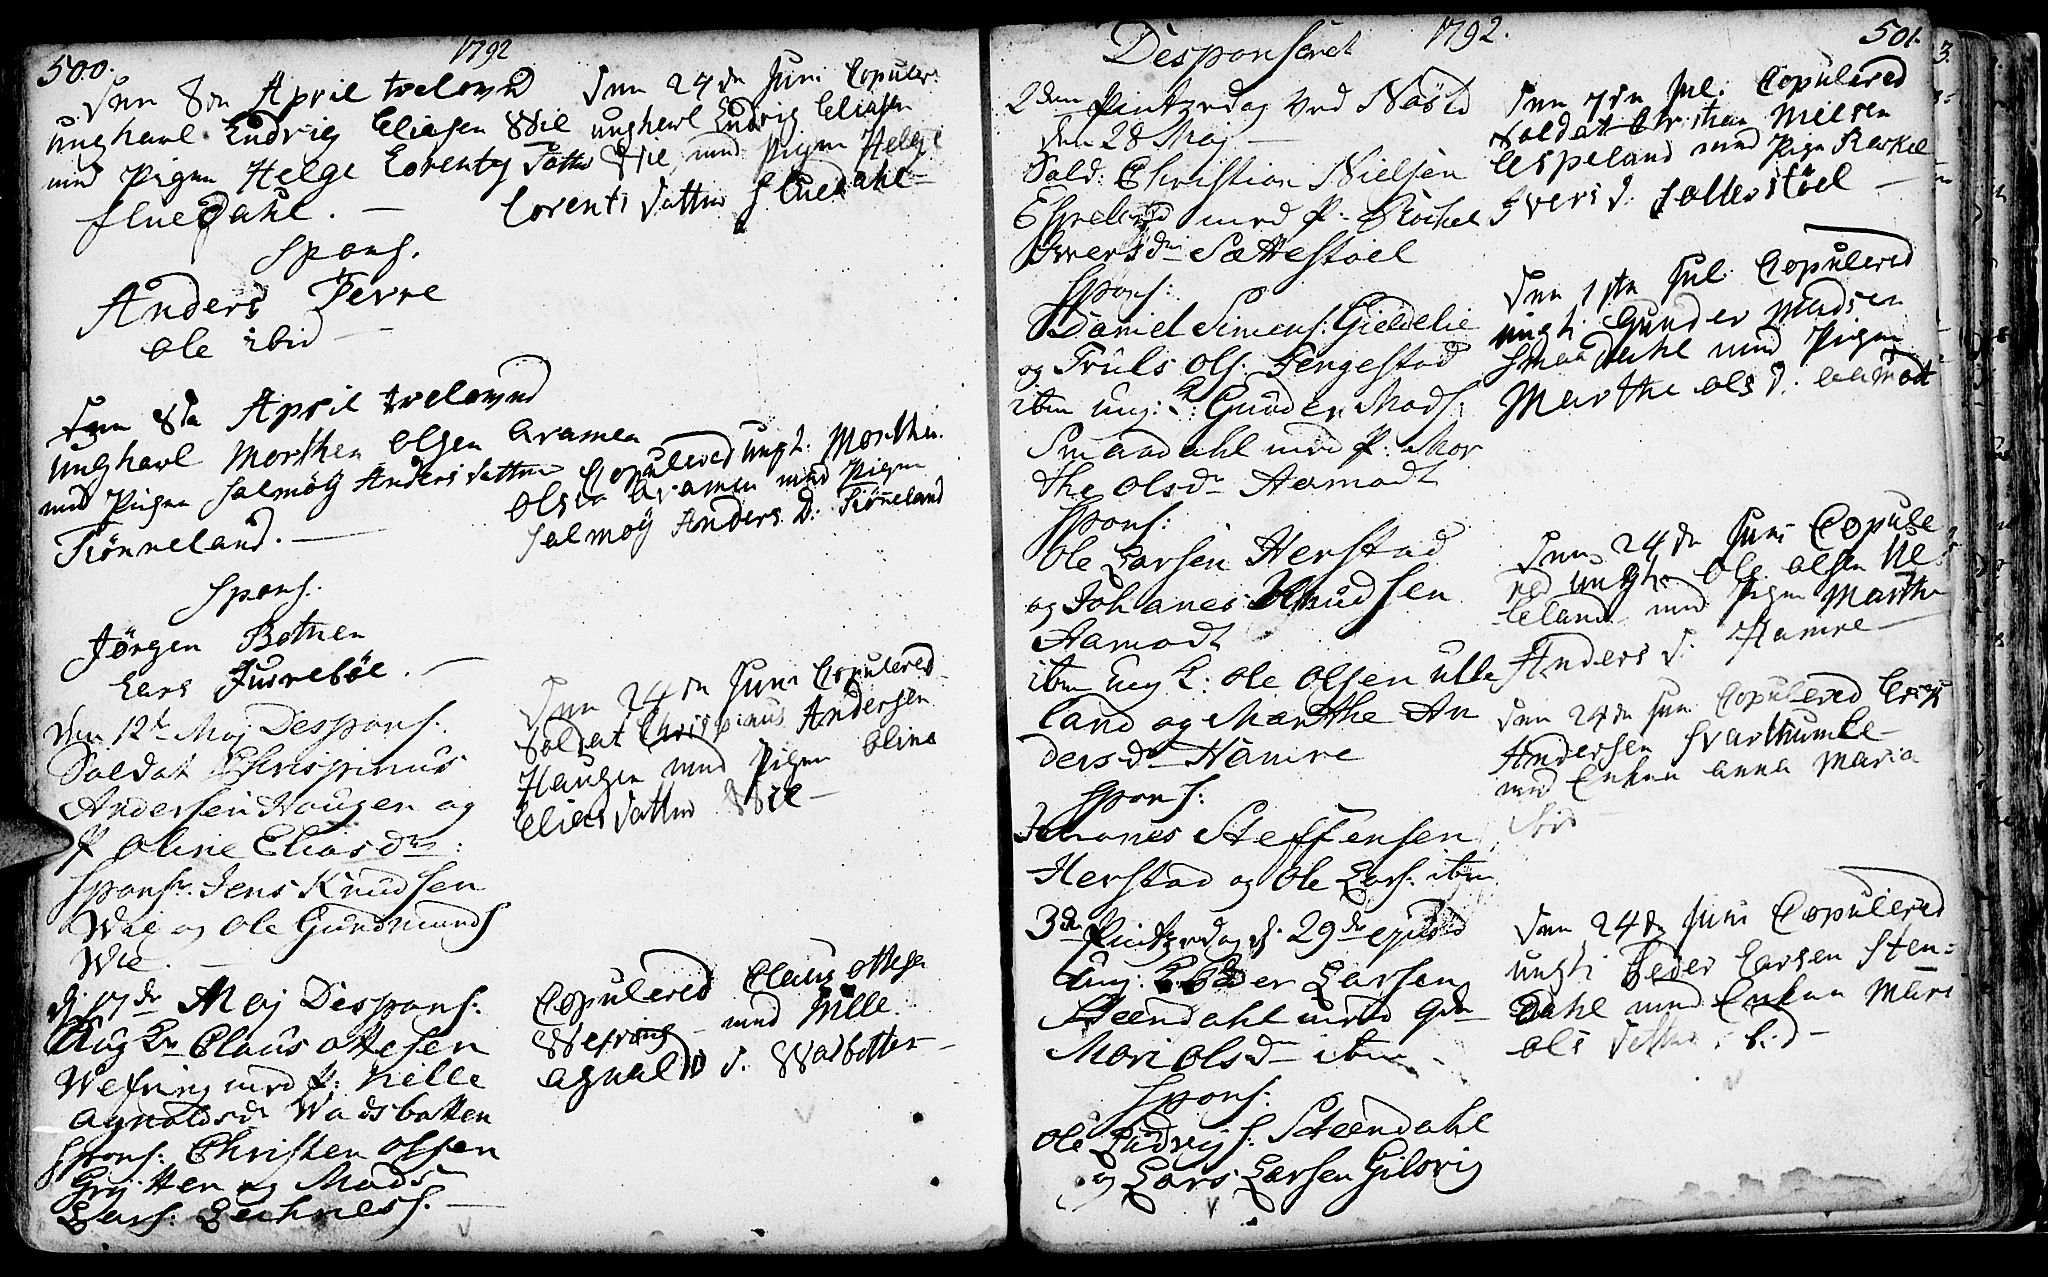 500.
1792
Den 8de April trolovud
ungkarl Ludvig Eliasen Wie
med Pigen Helge Lorentz Datter
fluedahl. —
Spons.
Anders Ferre
Ole ibid —
Den 8de April trolovud
ungkarl Morthen Olsen Aramen
med Pigen Salmøÿ Anders Datter
Tiønneland. —
Spons.
Jørgen Botnen
Lars Jusrebøe. —
den 12te Maj Despons.
Soldat Chrispinus
Andersen Hougen og
P Oline Eliasdr:
Sponsr. Jens Knudsen
Wie og Ole Gundmunds
Wie. —
d: 17de Maj Despons:
Ung Kr Claus Ottesen
Wefring med P: Hille
Agnoldsdr Wadsbotten
Spons: Christen Olsen
Grytten og Mads
Lars: Lechness. —
Den 24de Juni Copuler:
ungkarl Ludvig Eliasen
Wie, med Pigen Helge
Lorents Datter fluedahl —
Copulered ungk. Morthen
Olsen Aramen med Pigen
Salmøÿ Anders D: Tiønneland
Den 24de Juni Copulered
Soldat Chrispinus Andersen
Haugen med Pigen Oline
Elias Datter Wie —
Copulered Claus Ottesen
Wefring med Hille
Agnald D. Wasbotten —
Desponseret 1792.
501.
2den Pintzedag ved Nøstd
den 28 Maj —
Sold: Christian Nielsen
Espeland med P. Rachel
Iversdr Sættestøel
Spons:
Daniel Simens: Gieldelie
og Truls Ols: Fengestad
item ung: K: Gunder Mads:
Smaadahl med P. Mar
the Olsdr Aamodt
Spons:
Ole Larsen Herstad
og Johanes Knudsen
Aamodt
item ung K: Ole Olsen Ulle
land og Marthe An
dersdr Hamre
Spons:
Johanes Steffensen
Herstad og Ole Lars: item
3de Pintzedag d: 29de ejusd
Ung: K Peder Larsen
Steendahl med Qde
Mari Olsdr item —
Spons:
Ole Ludvigs: Steendahl
og Lars Larsen Gilsvig
Den 7de Jul: Copulered
Soldat Christian Nielsen
Espeland med Pige Rackel
Ivers D. Sallestøel —
Den 1ste Jul Copulered
ungk: Gunder Madsen
Smaadahl med Pigen
Marthe Ols D. Aamodt
Den 24de Juni Copule
red ungk: Ole Olsen Ul:
leland med Pigen Marthe
Anders D: Hamre —
Den 24de Juni Copulered
Andersen Svarthumle
med Enken Anna Maria
ibid —
Den 24de Juni Copulered
ungk: Peder Larsen Sten:
dahl med Enken Mari
Ols Datter ibid —